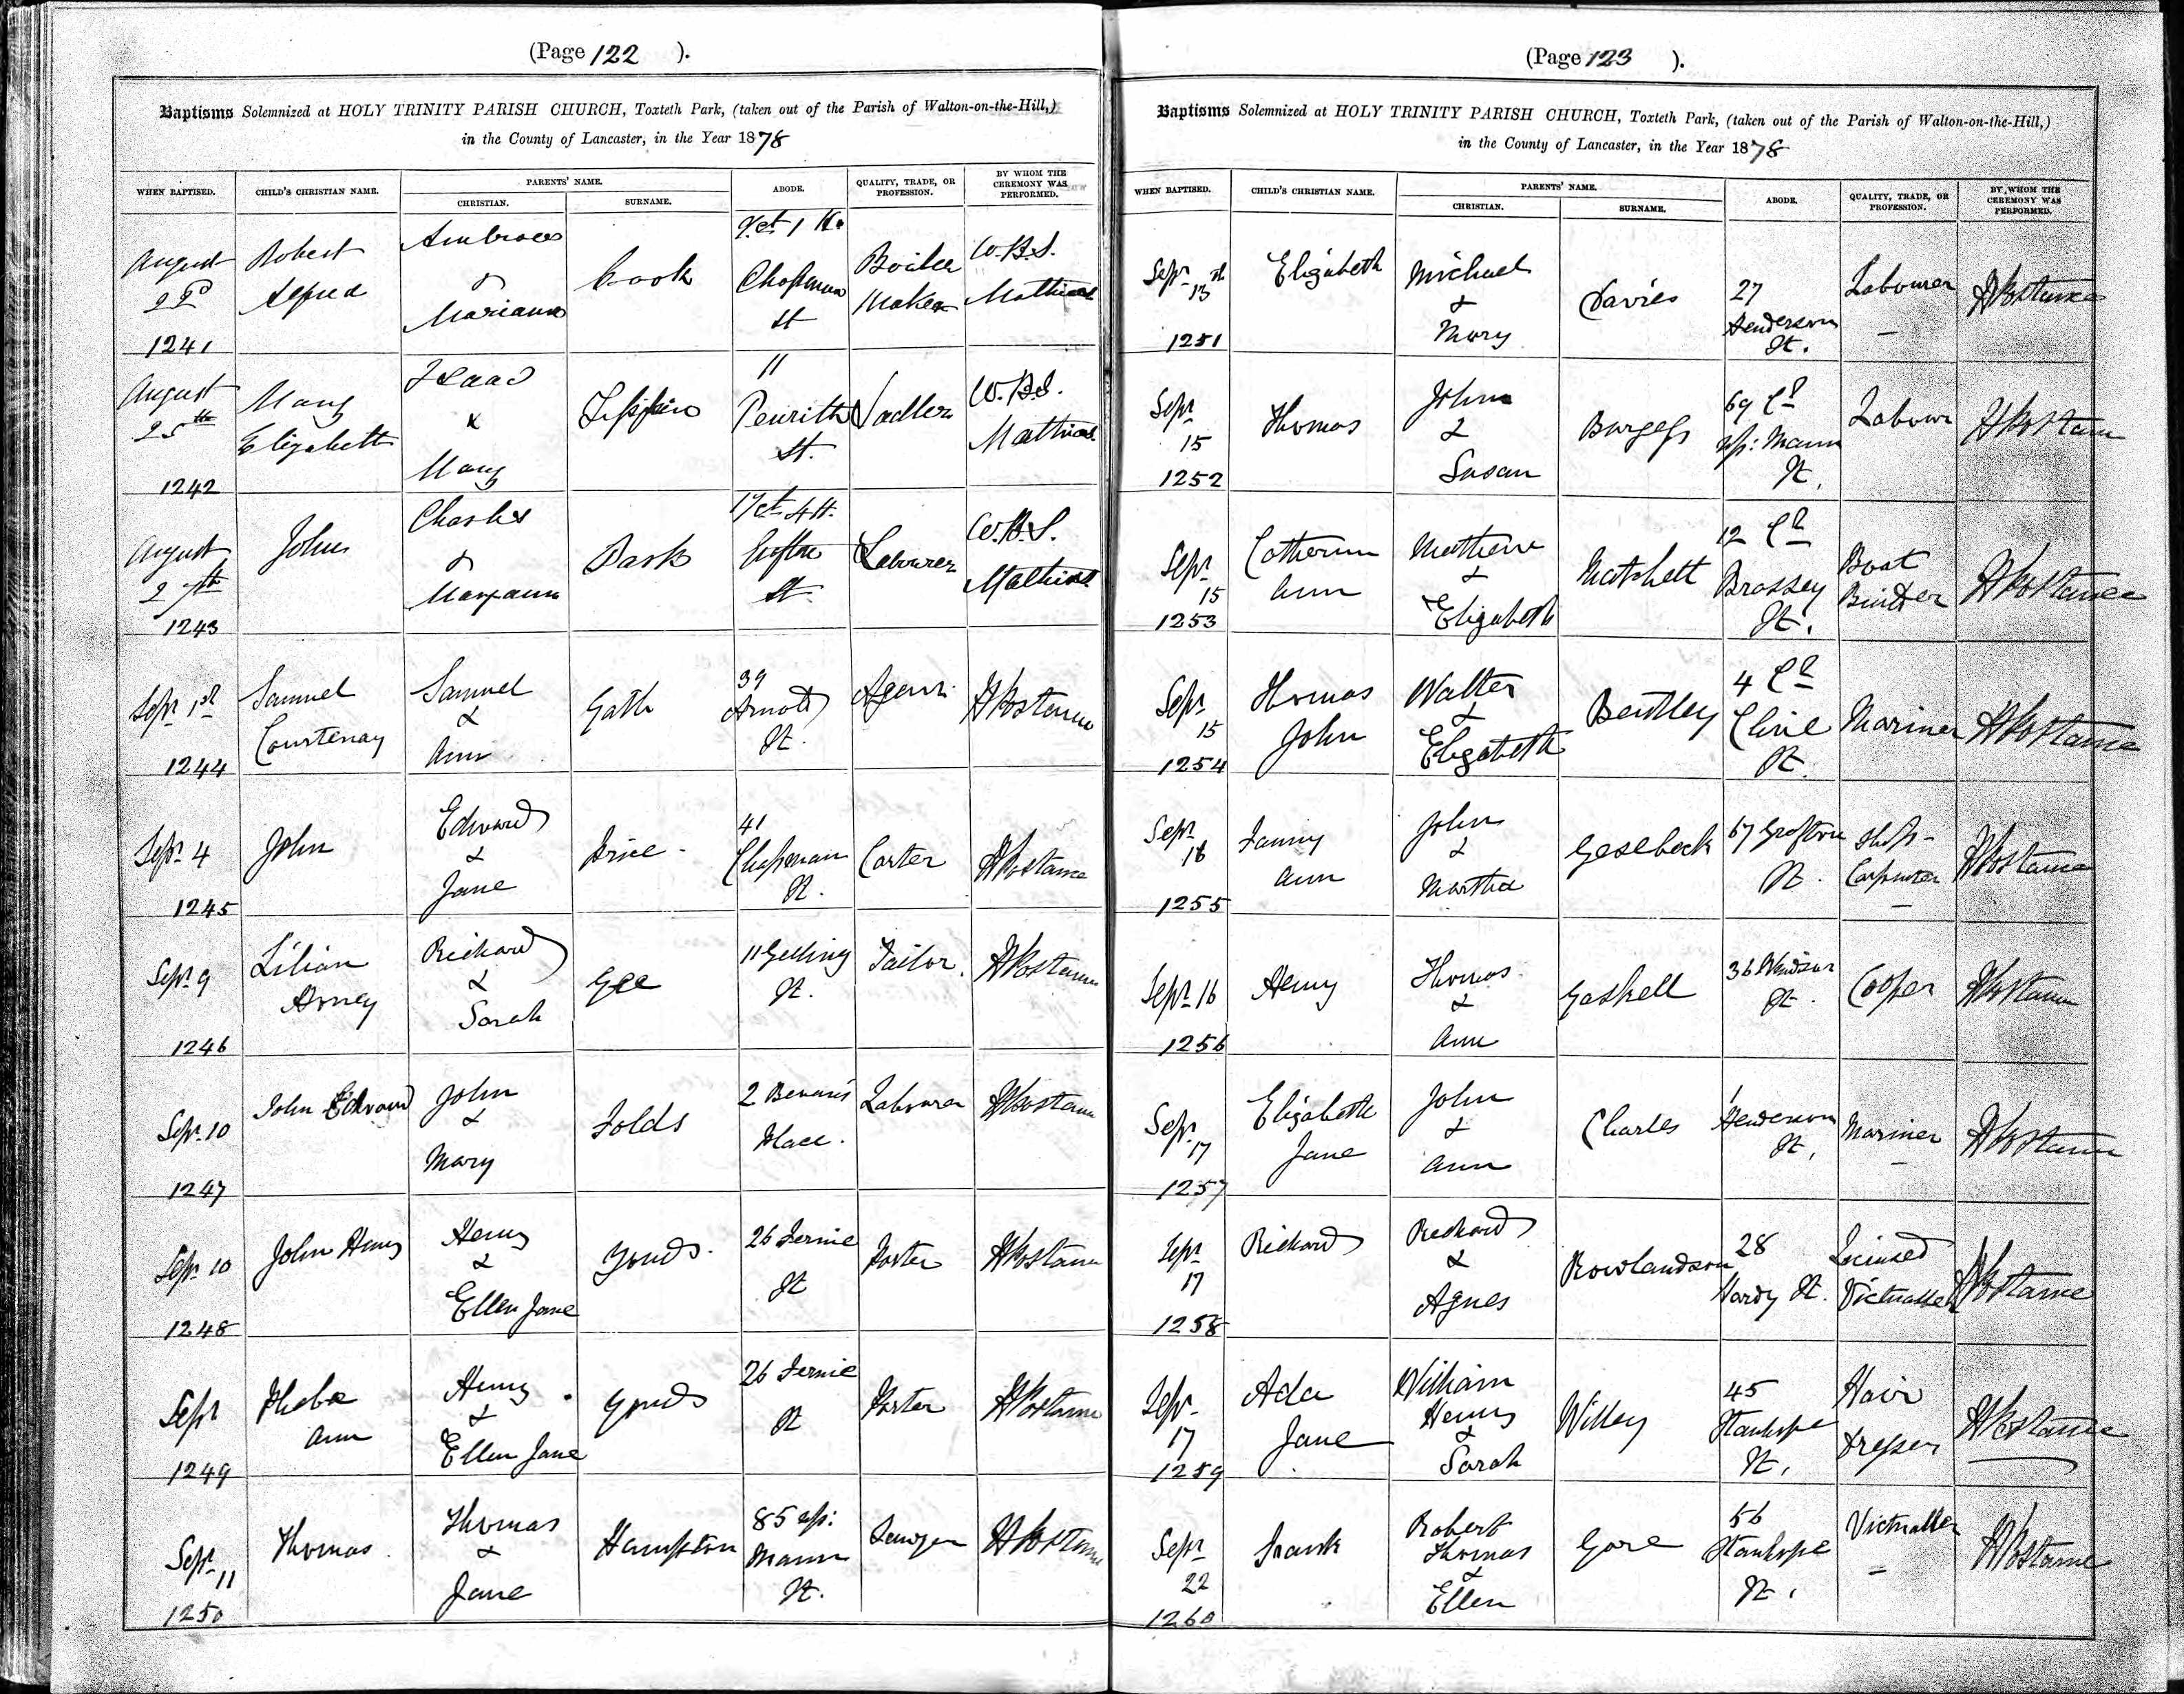 (Page 122 ).
Baptisms Solemnized at HOLY TRINITY PARISH CHURCH, Toxteth Park, (taken out of the Parish of Walton-on-the-Hill,)
in the County of Lancaster, in the Year 1878
WHEN BAPTISED. CHILD'S CHRISTIAN NAME. PARENTS' NAME. CHRISTIAN. SURNAME. ABODE. QUALITY, TRADE, OR PROFESSION. BY WHOM THE CEREMONY WAS PERFORMED.
August
1241
Robert
Alfred
Ambrose
&
Mariann
Cook
Chapman
St
Boiler
Maker
W.B.S.
Mathias
August
25th
1242
Mary
Elizabeth
Isaac
&
Mary
11
Penrith
St.
Sadler
W.B.S.
Mathias
August
27th
1243
John
Charles
&
Maryann
Park
Grafton
St.
Labourer
W.B.S.
Mathias
Sepr 1st
1244
Samuel
Courtenay
Samuel
&
Ann
Gath
39
Arnold
St.
Agent
H Postance
Sepr 4
1245
John
Edward
&
Jane
Price
41
Chapman
St.
Carter
H Postance
Sepr 9
1246
Lilian
Edward
Richard
&
Sarah
Gee
11 Gelling
St.
Tailor
H Postance
Sepr 10
1247
John Edward
John
&
Mary
Folds
2 Bevans
Place.
Labourer
H Postance
Sepr 10
1248
John Henry
Henry
&
Ellen Jane
26 Fernie
St
Porter
H Postance
Sepr
1249
Pheba
Ann
Henry
&
Ellen Jane
26 Fernie
St
Porter
H Postance
Sepr
11
1250
Thomas
Thomas
&
Jane
Hampston
85 up:
Mann
St.
H Postance
(Page 123 ).
Baptisms Solemnized at HOLY TRINITY PARISH CHURCH, Toxteth Park, (taken out of the Parish of Walton-on-the-Hill,)
in the County of Lancaster, in the Year 1878
WHEN BAPTISED. CHILD'S CHRISTIAN NAME. PARENTS' NAME. CHRISTIAN. SURNAME. ABODE. QUALITY, TRADE, OR PROFESSION. BY WHOM THE CEREMONY WAS PERFORMED.
Sepr
13th
1251
Elizabeth
Michael
&
Mary
Davies
27
Henderson
St.
Labourer
H Postance
Sepr
15
1252
Thomas
John
&
Susan
Burgess
69 Ct
up: Mann
St.
Labour
H Postance
Sepr
15
1253
Catherine
Ann
Mathew
&
Elizabeth
Matchett
12 Ct
Brassey
St.
Boat
Builder
H Postance
Sepr
15
1254
Thomas
John
Walter
&
Elizabeth
Bentley
4 Ct
Clive
St.
Mariner
H Postance
Sepr
16
1255
Fanny
Ann
John
&
Martha
Geselbeck
67 Grafton
St.
Ship-
Carpenter
H Postance
Sepr 16
1256
Henry
Thomas
&
Ann
Gaskell
36 Windsor
St.
Cooper
H Postance
Sepr
17
1257
Elizabeth
Jane
John
&
Ann
Charles
1
Henderson
St.
Mariner
H Postance
Sepr
17
1258
Richard
Richard
&
Agnes
Rowlandson
28
Hardy St.
Licensed
Victualler
H Postance
Sepr
17
1259
Ada
Jane
William
Henry
&
Sarah
Willey
45
Stanhope
St.
Hair
dresser
H Postance
Sepr
22
1260
Frank
Robert
Thomas
&
Ellen
Gore
56
Stanhope
St.
Victualler
H Postance